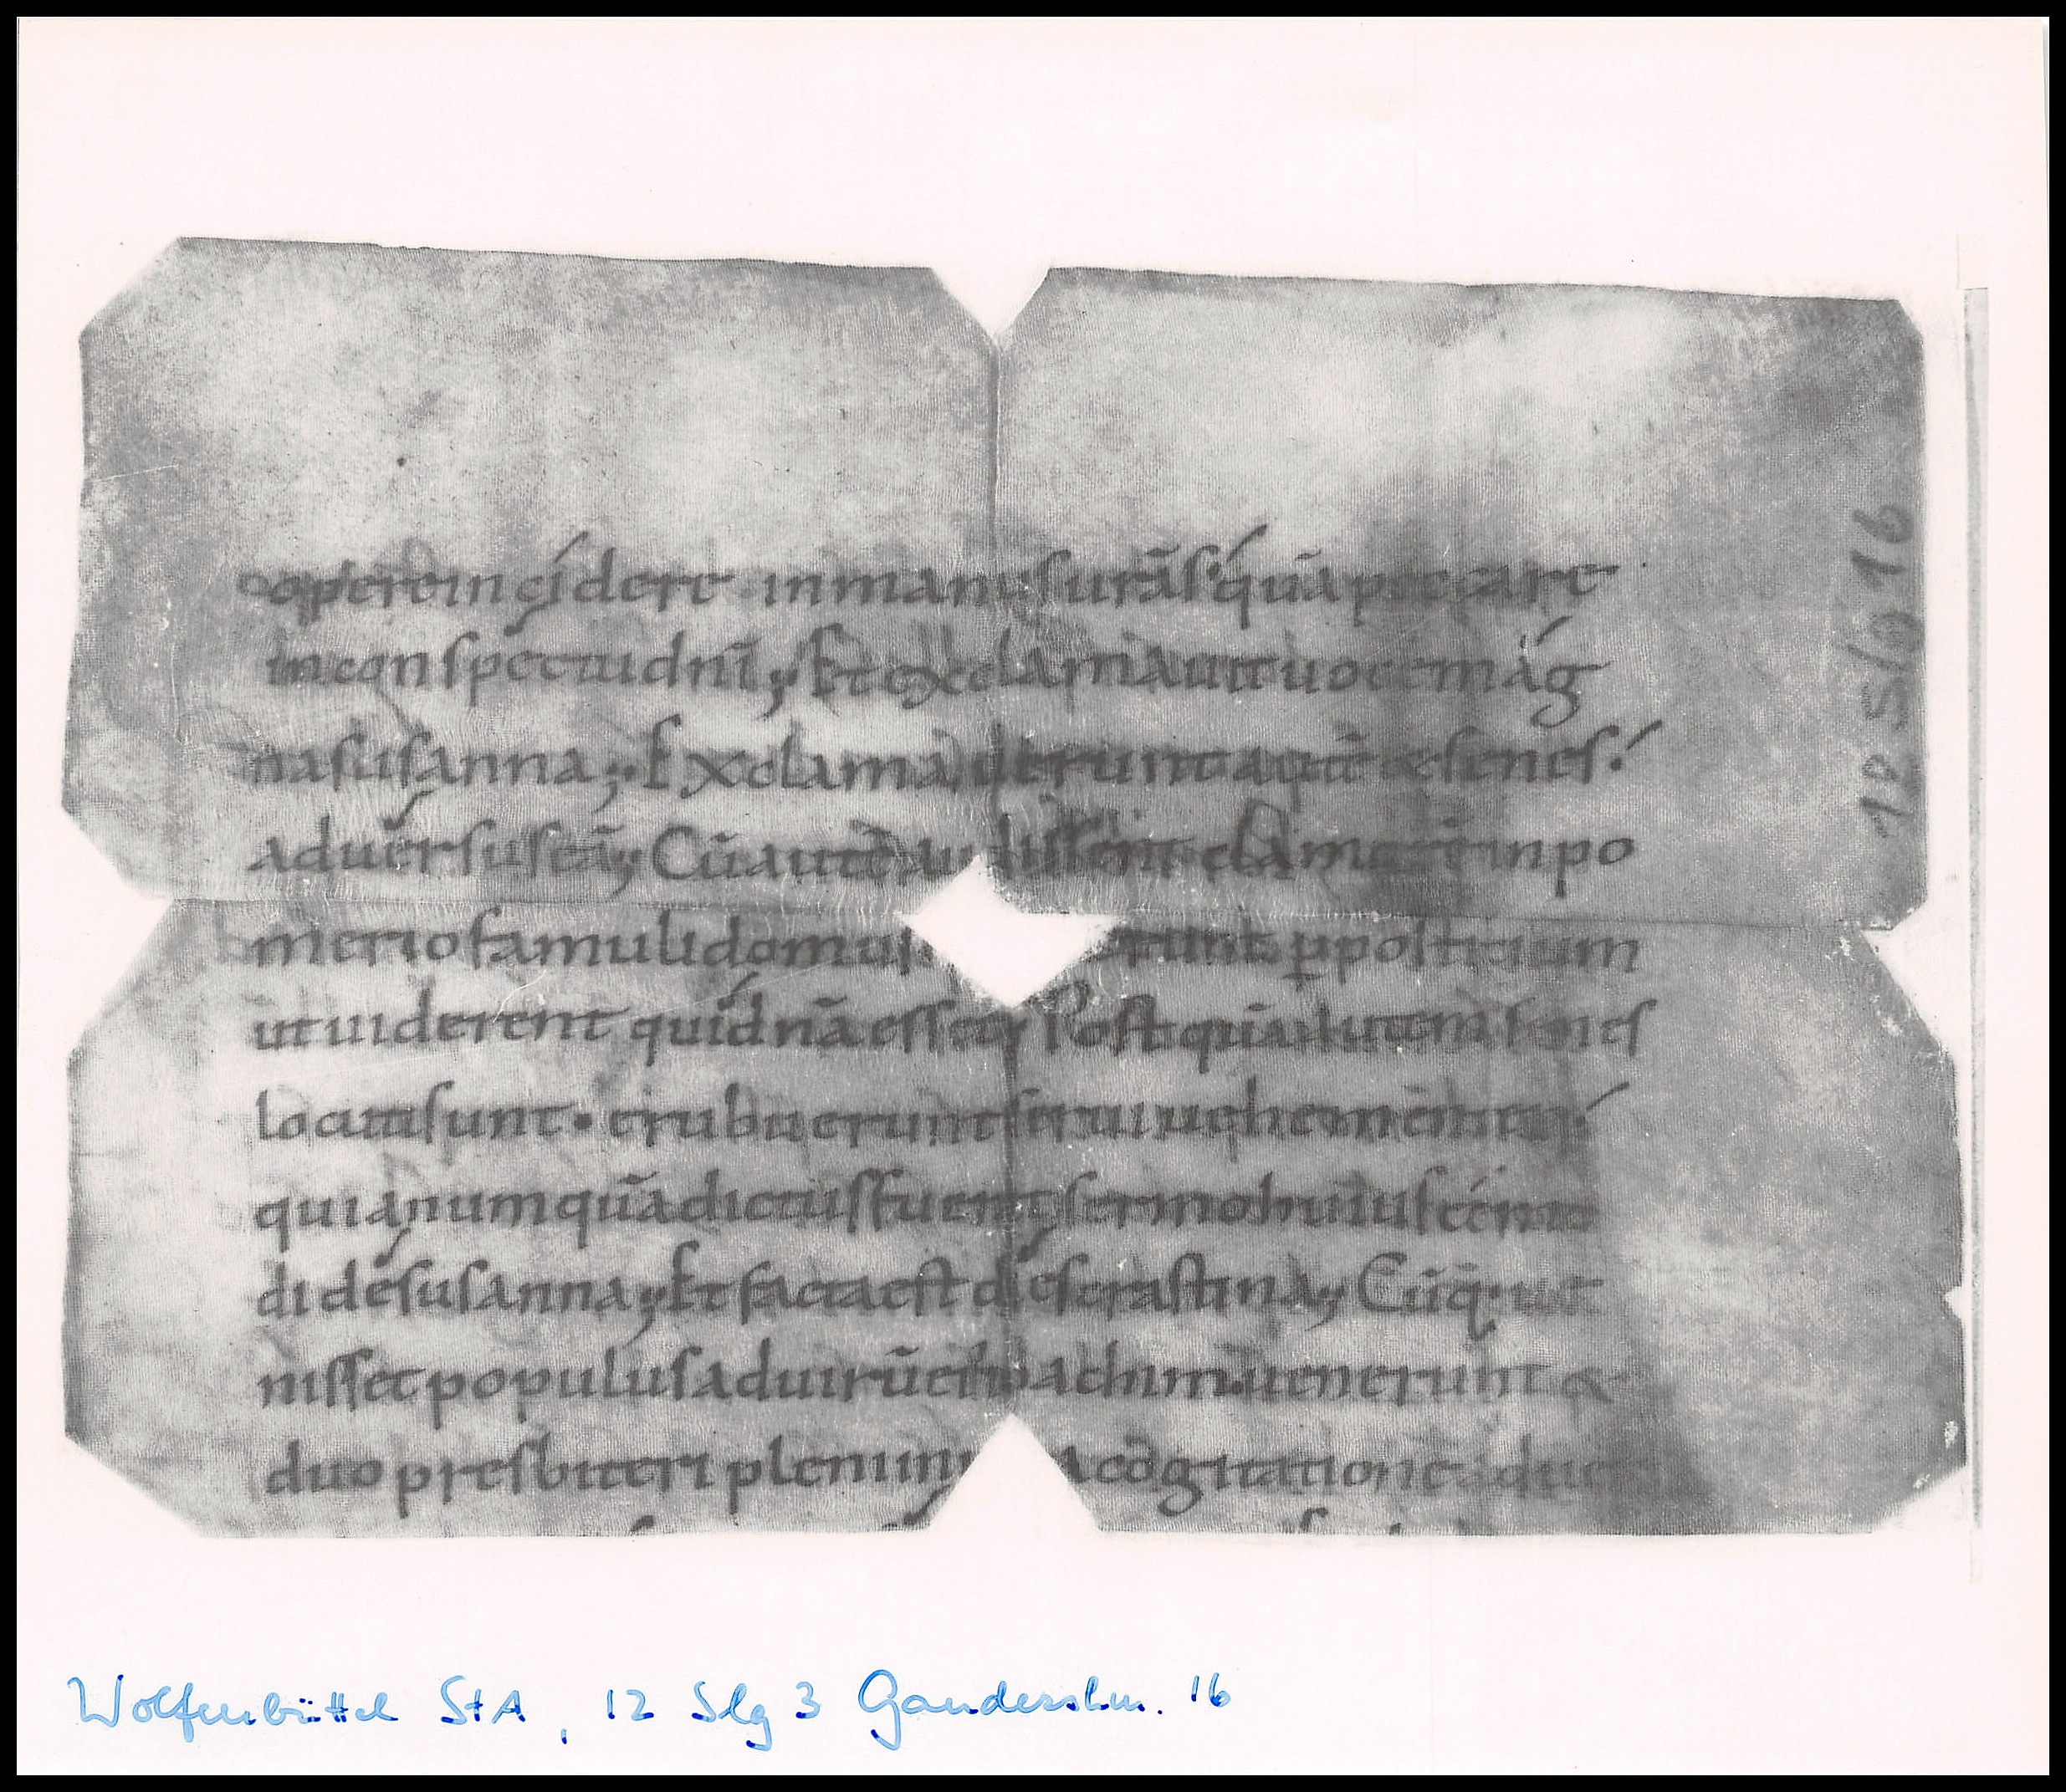 opere incidere in manus urãs quã peccare
in conspectu dni; Et exclamauit uoce mag
na susanna; Exclamauerunt autẽ & senes
aduersus eã; Cũ autẽ audissent clamorẽ in po
merio famuli domus runt ꝑ posticium
ut uiderent quid nã esset; Postquã autem senes
locuti sunt· erubuerunt serui uehementer
quia numquã dictus fuerat sermo huiuscemo
di de susanna; Et facta est dies crastina; Cũq· ue
nisset populus ad uirũ eius ioachim· uenerunt &
duo presbiteri pleni iniq a cogitatione aduer
12 S/g 16
Wolfenbüttel StA, 12 Slg 3 Gandershm. 16